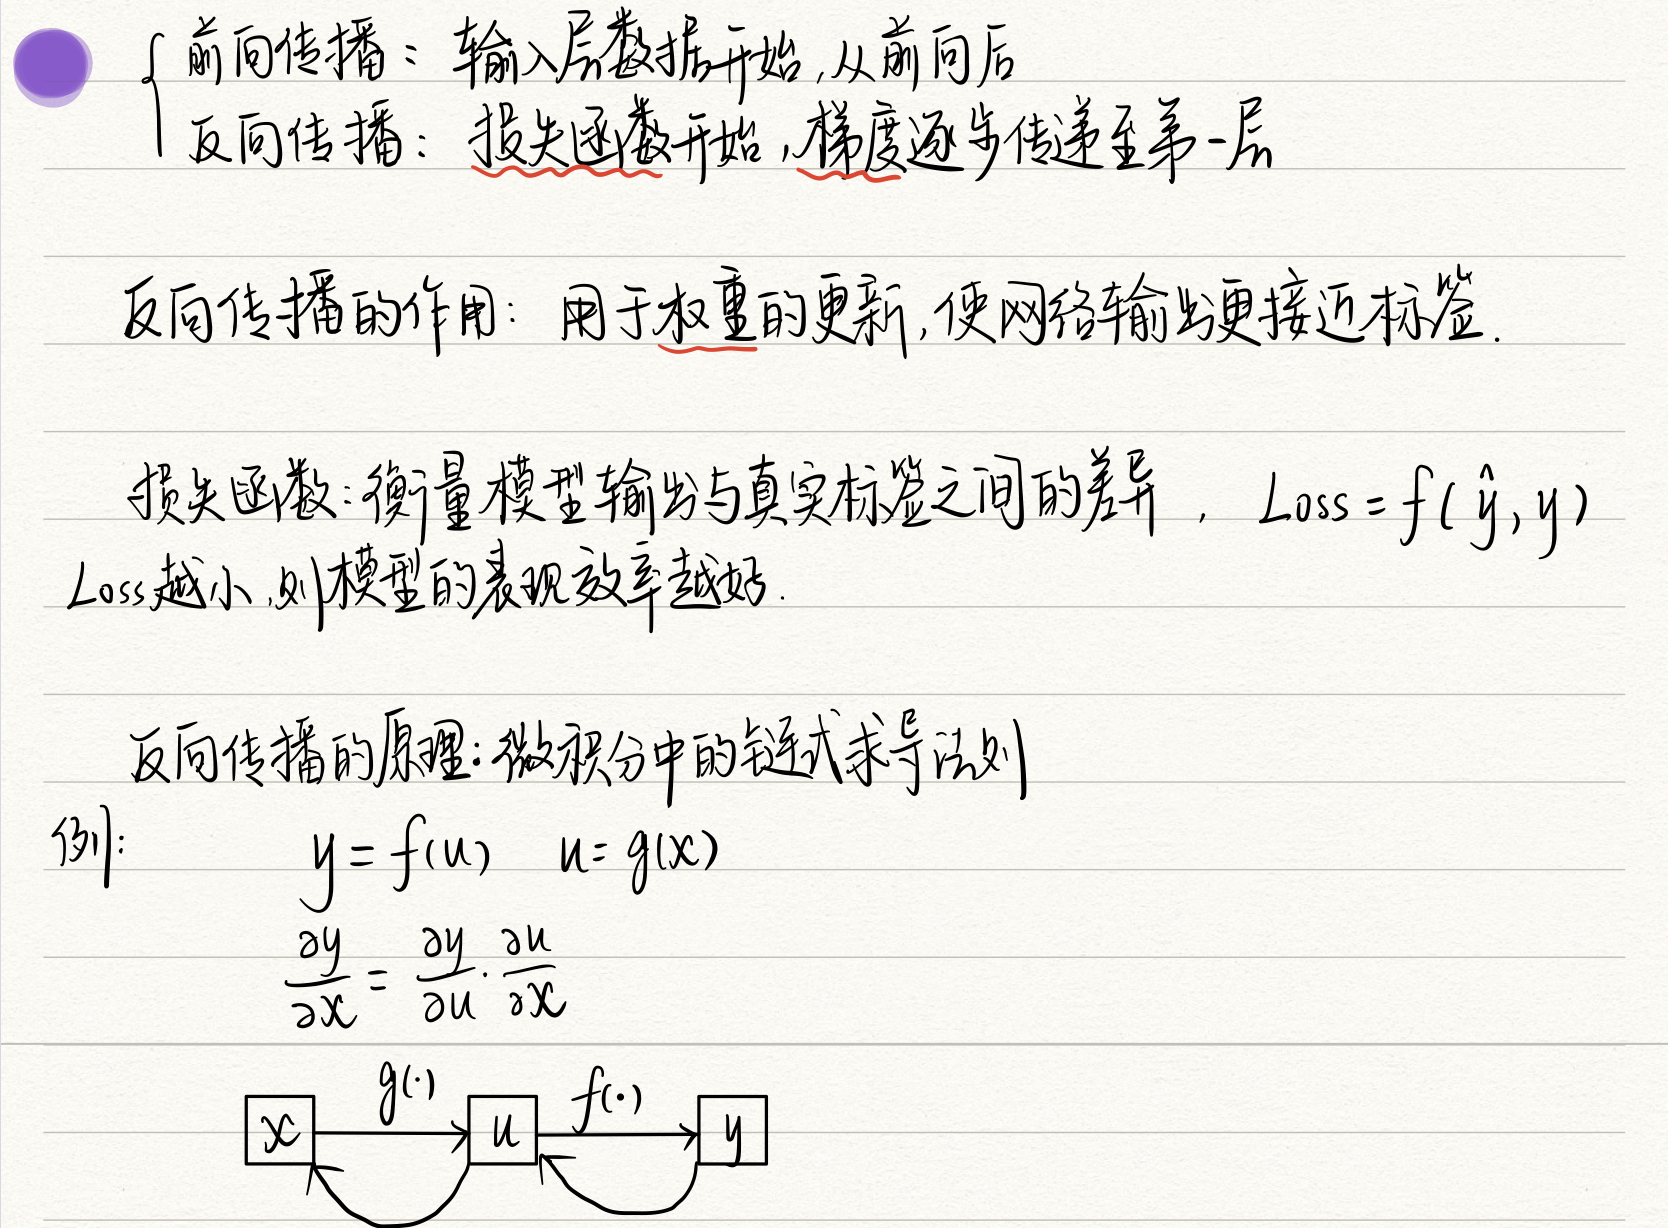 前向传播：输入层数据开始,从前向后
反向传播：损失函数开始,梯度逐步传递至第一层
反向传播的作用：用于权重的更新,使网络输出更接近标签.
损失函数:衡量模型输出与真实标签之间的差异, Loss = f(ŷ, y)
Loss越小,则模型的表现效率越好.
反向传播的原理:微积分中的链式求导法则
例:
y = f(u) u = g(x)
∂y/∂x = ∂y/∂u · ∂u/∂x
g(·) f(·)
x u y